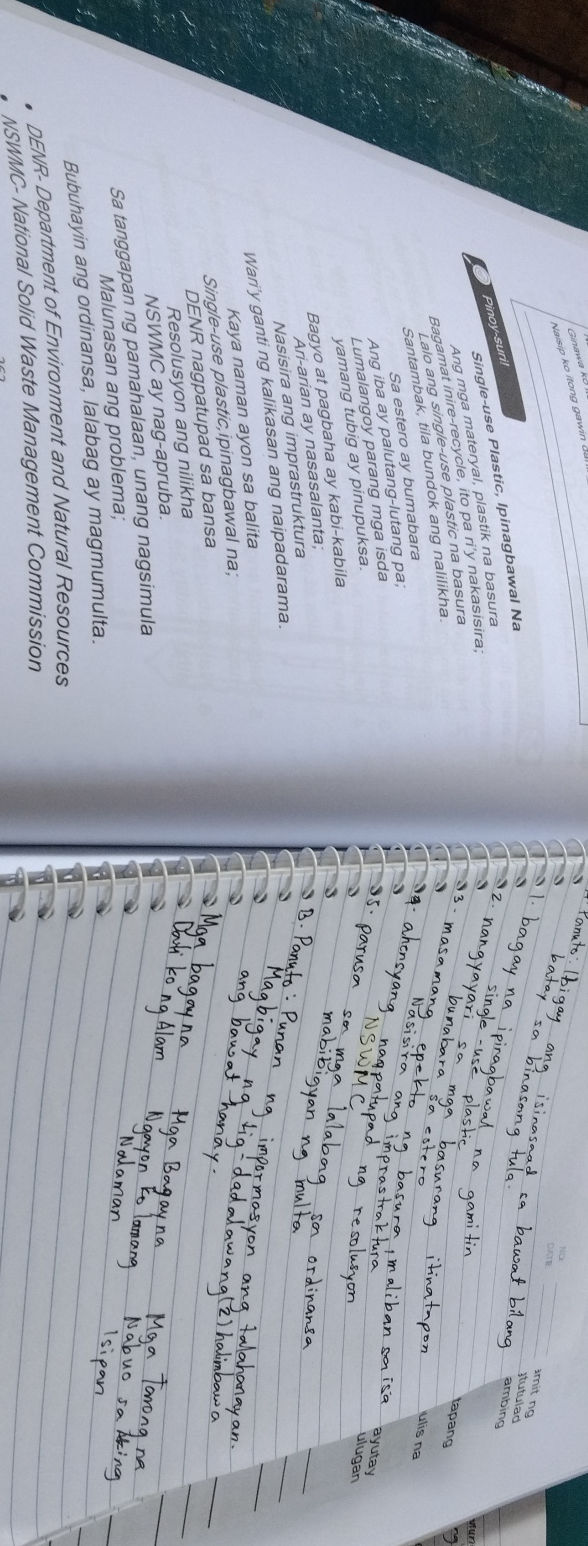 Naisip ko itong gawin
Pinoy-suri!
Single-use Plastic, Ipinagbawal Na
Ang mga materyal, plastik na basura
Bagamat inire-recycle, ito pa ri'y nakasisira;
Lalo ang single-use plastic na basura
Santambak, tila bundok ang nalilikha.
Sa estero ay bumabara
Ang iba ay palutang-lutang pa;
Lumalangoy parang mga isda
yamang tubig ay pinupuksa.
Bagyo at pagbaha ay kabi-kabila
Ari-arian ay nasasalanta;
Nasisira ang imprastruktura
Wari'y ganti ng kalikasan ang naipadarama.
Kaya naman ayon sa balita
Single-use plastic,ipinagbawal na;
DENR nagpatupad sa bansa
Resolusyon ang nilikha
NSWMC ay nag-apruba.
Sa tanggapan ng pamahalaan, unang nagsimula
Malunasan ang problema;
Bubuhayin ang ordinansa, lalabag ay magmumulta.
• DENR- Department of Environment and Natural Resources
• NSWMC- National Solid Waste Management Commission
NO.
DATE
Panuto: Ibigay ang isinasaad sa bawat bilang
batay sa binasang tula.
1. bagay na ipinagbawal na gamitin
single-use plastic
2. nangyayari sa mga basurang itinatapon
bumabara sa estero
3. masamang epekto ng basura, maliban sa isa
Nasisira ang imprastraktura
4. ahensyang nagpatupad ng resolusyon
NSWMC
5. parusa sa mga lalabag sa ordinansa
mabibigyan ng multa
B. Panuto: Punan ng impormasyon ang talahanayan.
Magbigay ng tig-dadalawang (2) halimbawa
ang bawat hanay.
Mga bagay na
Dati ko ng Alam
Mga Bagay na
Ngayon ko lamang
Nalaman
Mga Tanong na
Nabuo sa Aking
Isipan
amit ng
tutulad
ambing
tapang
ulis na
ayutay
ulugan